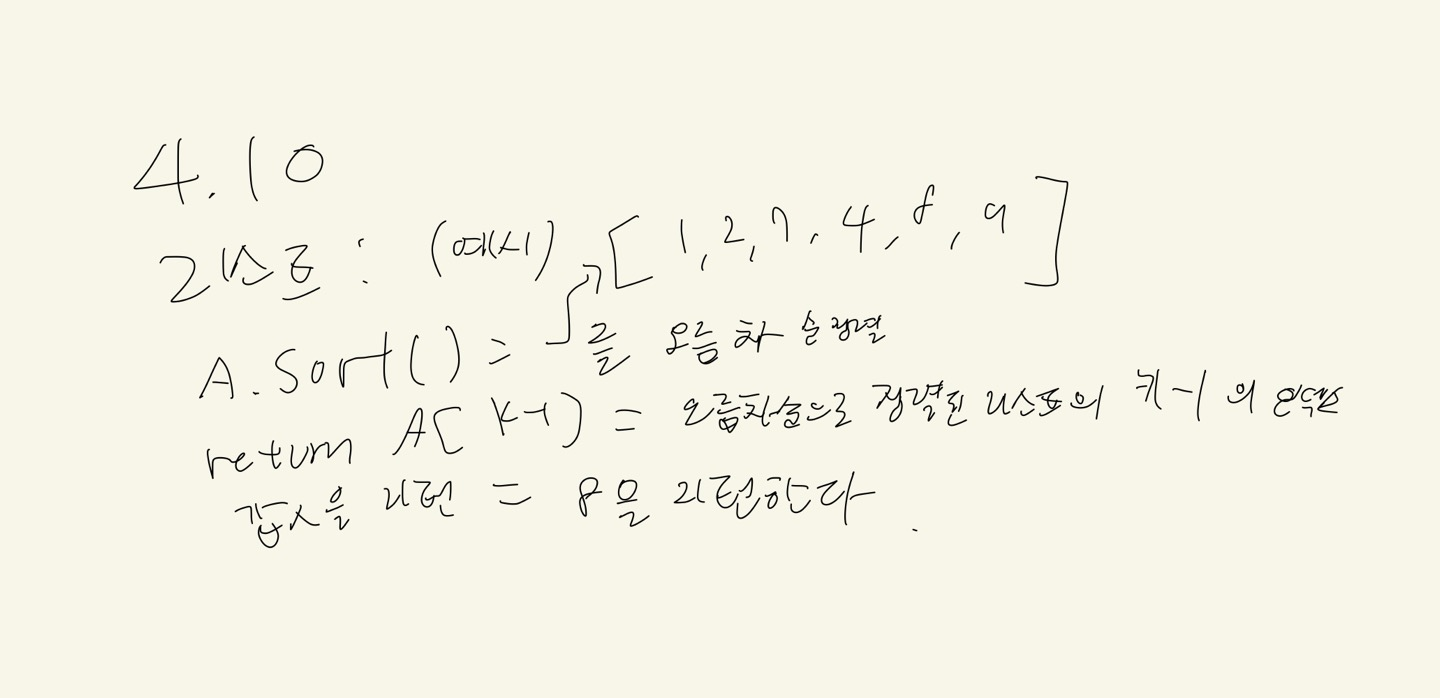 4.10
리스트 : (예시) [ 1, 2, 7, 4, 8, 9 ]
A.Sort() = 를 오름차 순정렬
return A[ K-1 ) = 오름차순으로 정렬된 리스트의 키-1의 인덱스
값을 리턴 = 8을 리턴한다.